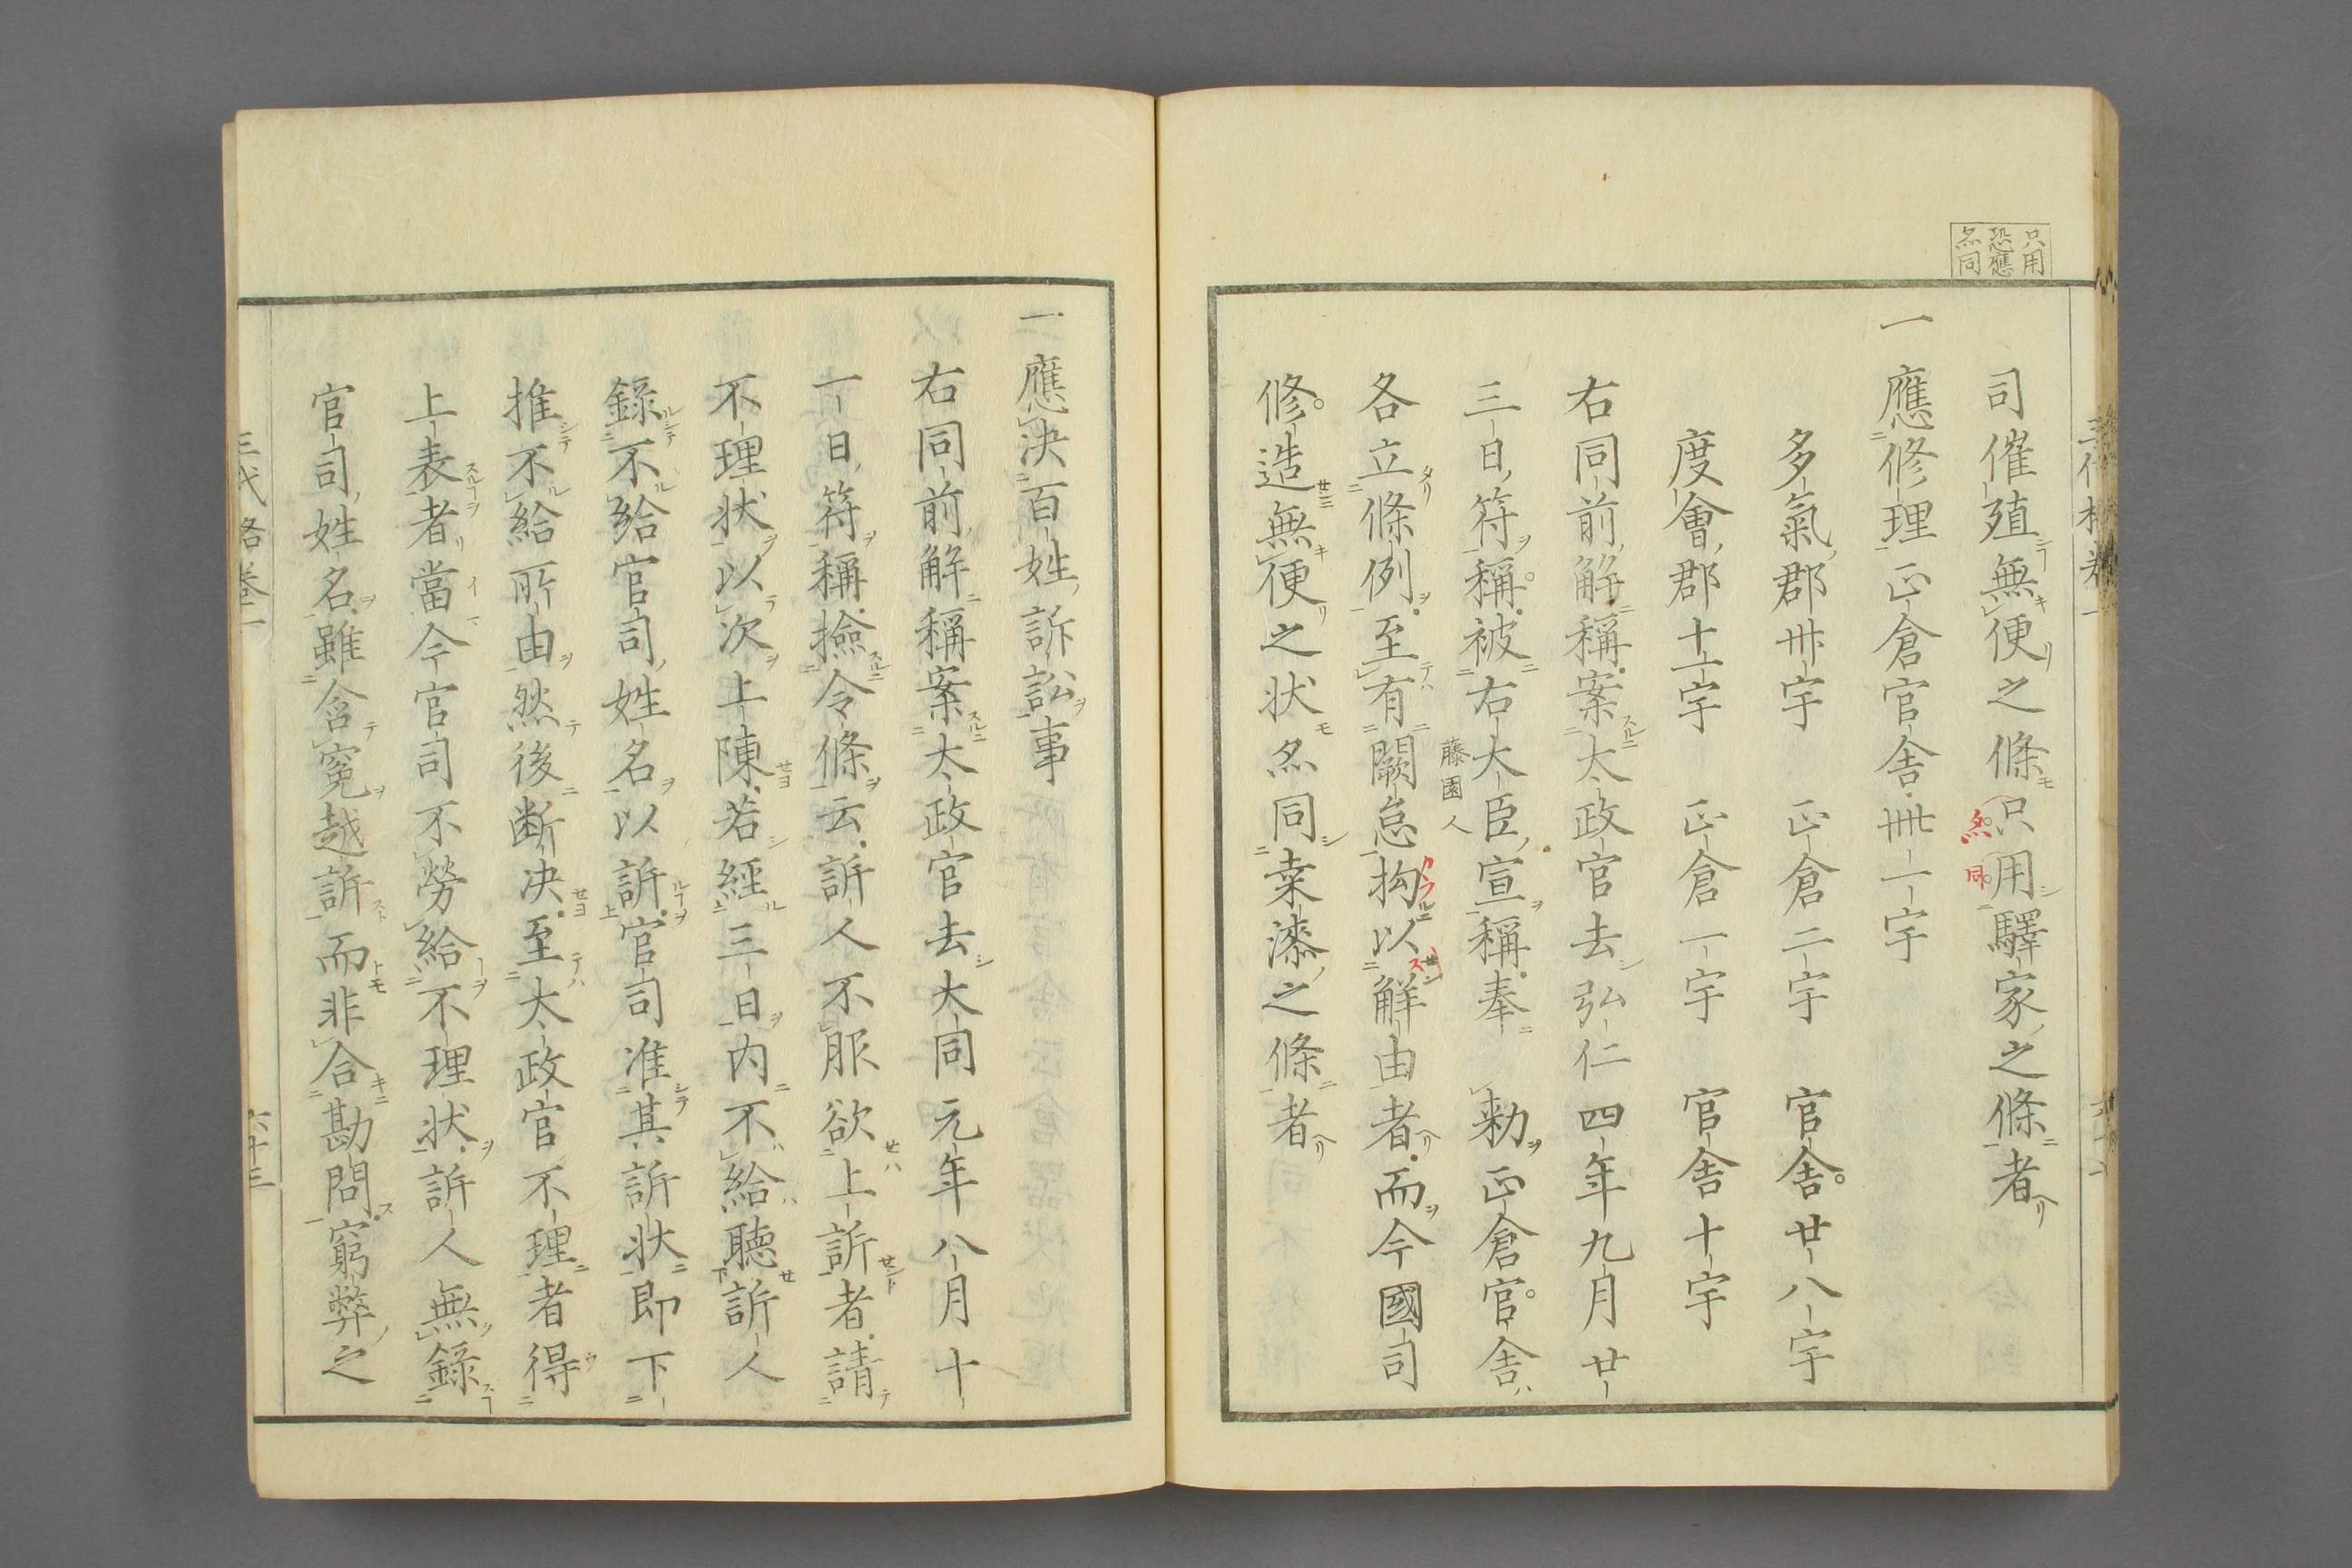 只用
恐應
㷊同
司催殖無便之條只用驛家之條者
㷊同
一應修理正倉官舎卌一宇
多氣郡卅宇　正倉二宇　官舎廿八宇
度會郡十一宇　正倉一宇　官舎十宇
右同前解稱案太政官去弘仁四年九月廿
三日符稱被右大臣宣稱奉　勅正倉官舎
藤園人
各立條例至有闕怠拘以解由者而今國司
修造無便之状㷊同桒漆之條者
一應決百姓訴訟事
右同前解稱案太政官去大同元年八月十
一日符稱撿令條云訴人不服欲上訴者請
不理状以次上陳若經三日内不給聽訴人
錄不給官司姓名以訴官司准其訴状即下
推不給所由然後断决至太政官不理者得
上表者當今官司不勞給不理状訴人無錄
官司姓名雖含寃越訴而非合勘問窮弊之
三代格卷一
六十三